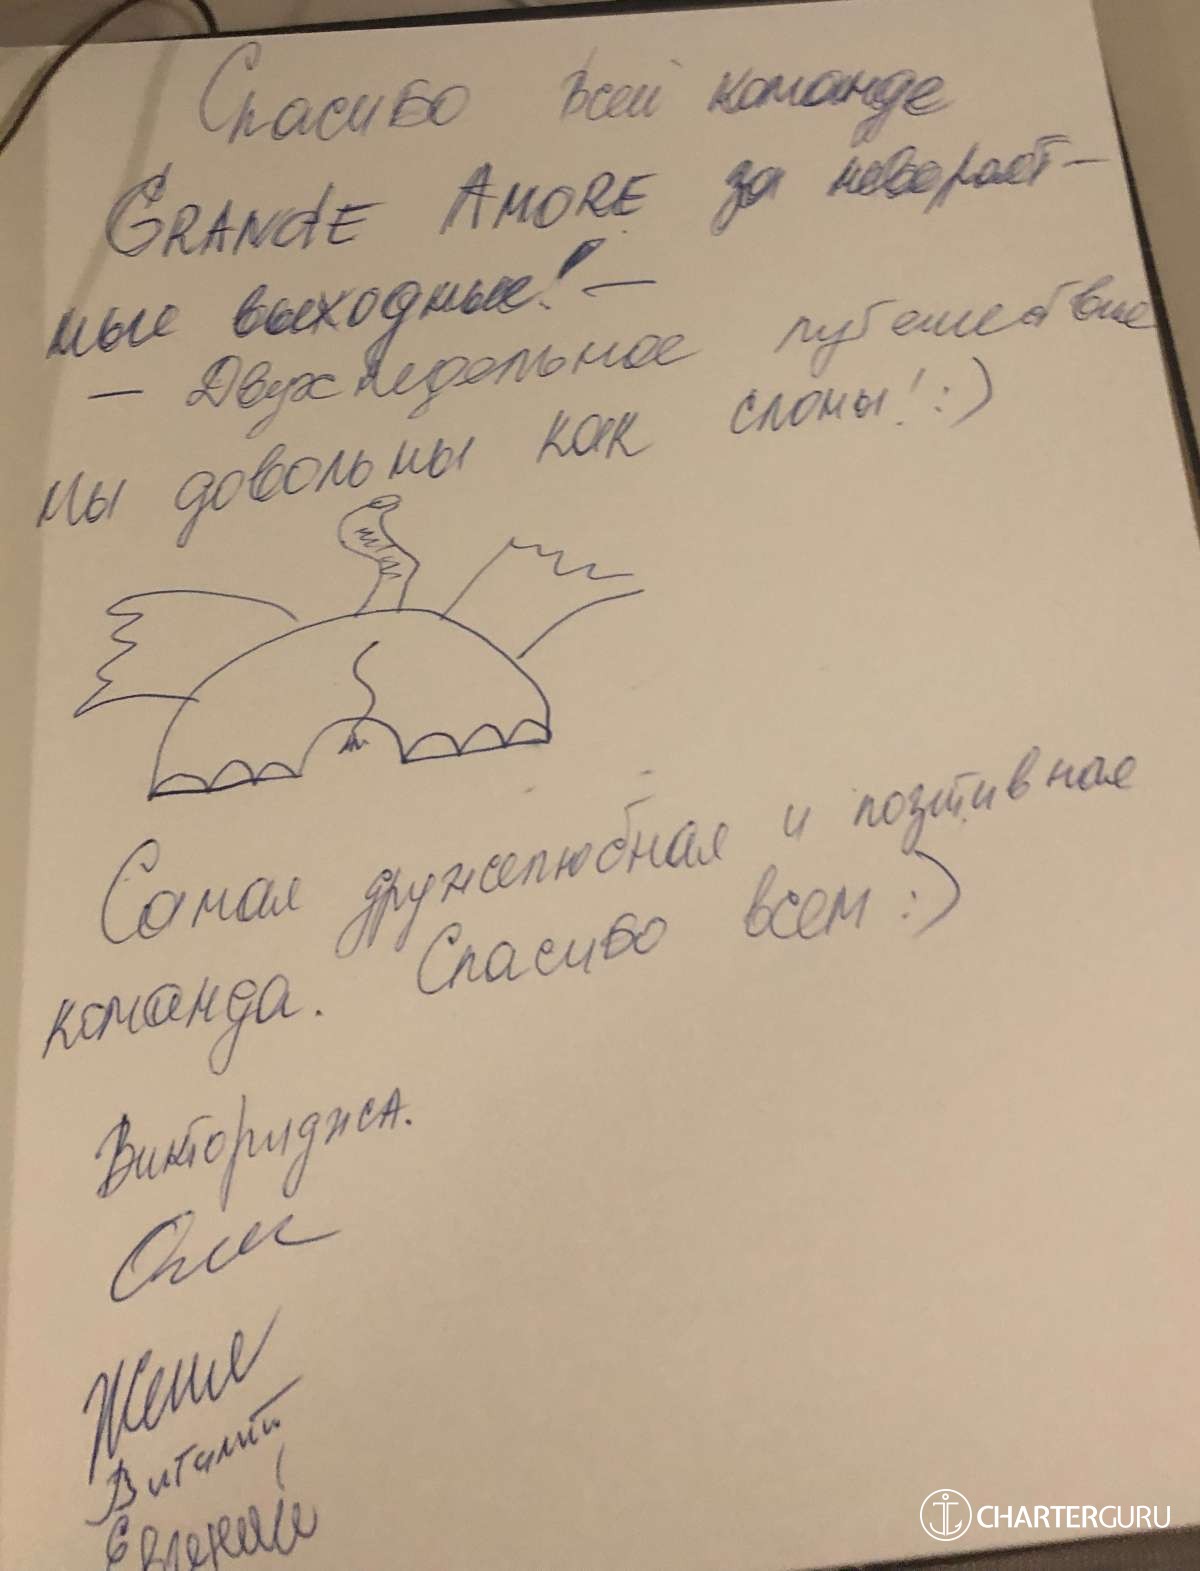 Спасибо всей команде
GRANDE AMORE за невероят-
ные выходные! —
— Двухнедельное путешествие
Мы довольны как слоны! :)
Самая дружелюбная и позитивная
команда. Спасибо всем :)
Викториджса.
Женя
Виталий
Евгений
CHARTERGURU